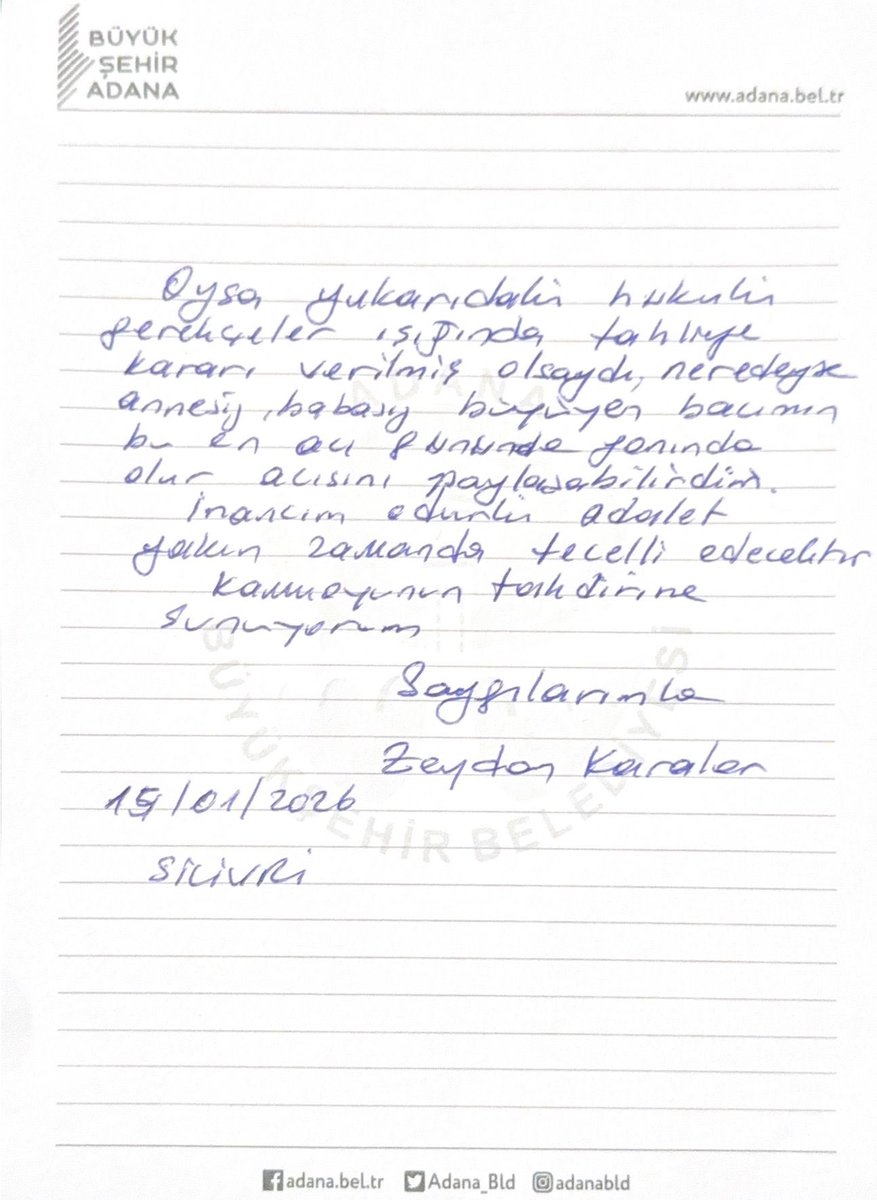 BÜYÜK
ŞEHİR
ADANA
www.adana.bel.tr
Oysa yukarıdaki hukuki
gerekçeler ışığında tahliye
kararı verilmiş olsaydı, neredeyse
annesiz, babasız büyüyen bacımın
bu en acı gününde yanında
olur acısını paylaşabilirdim.
İnancım odurki adalet
yakın zamanda tecelli edecektir
Kamuoyunun takdirine
sunuyorum
Saygılarımla
Zeydan Karalar
15/01/2026
SİLİVRİ
ADANA
BÜYÜKŞEHİR BELEDİYESİ
adana.bel.tr Adana_Bld adanabld